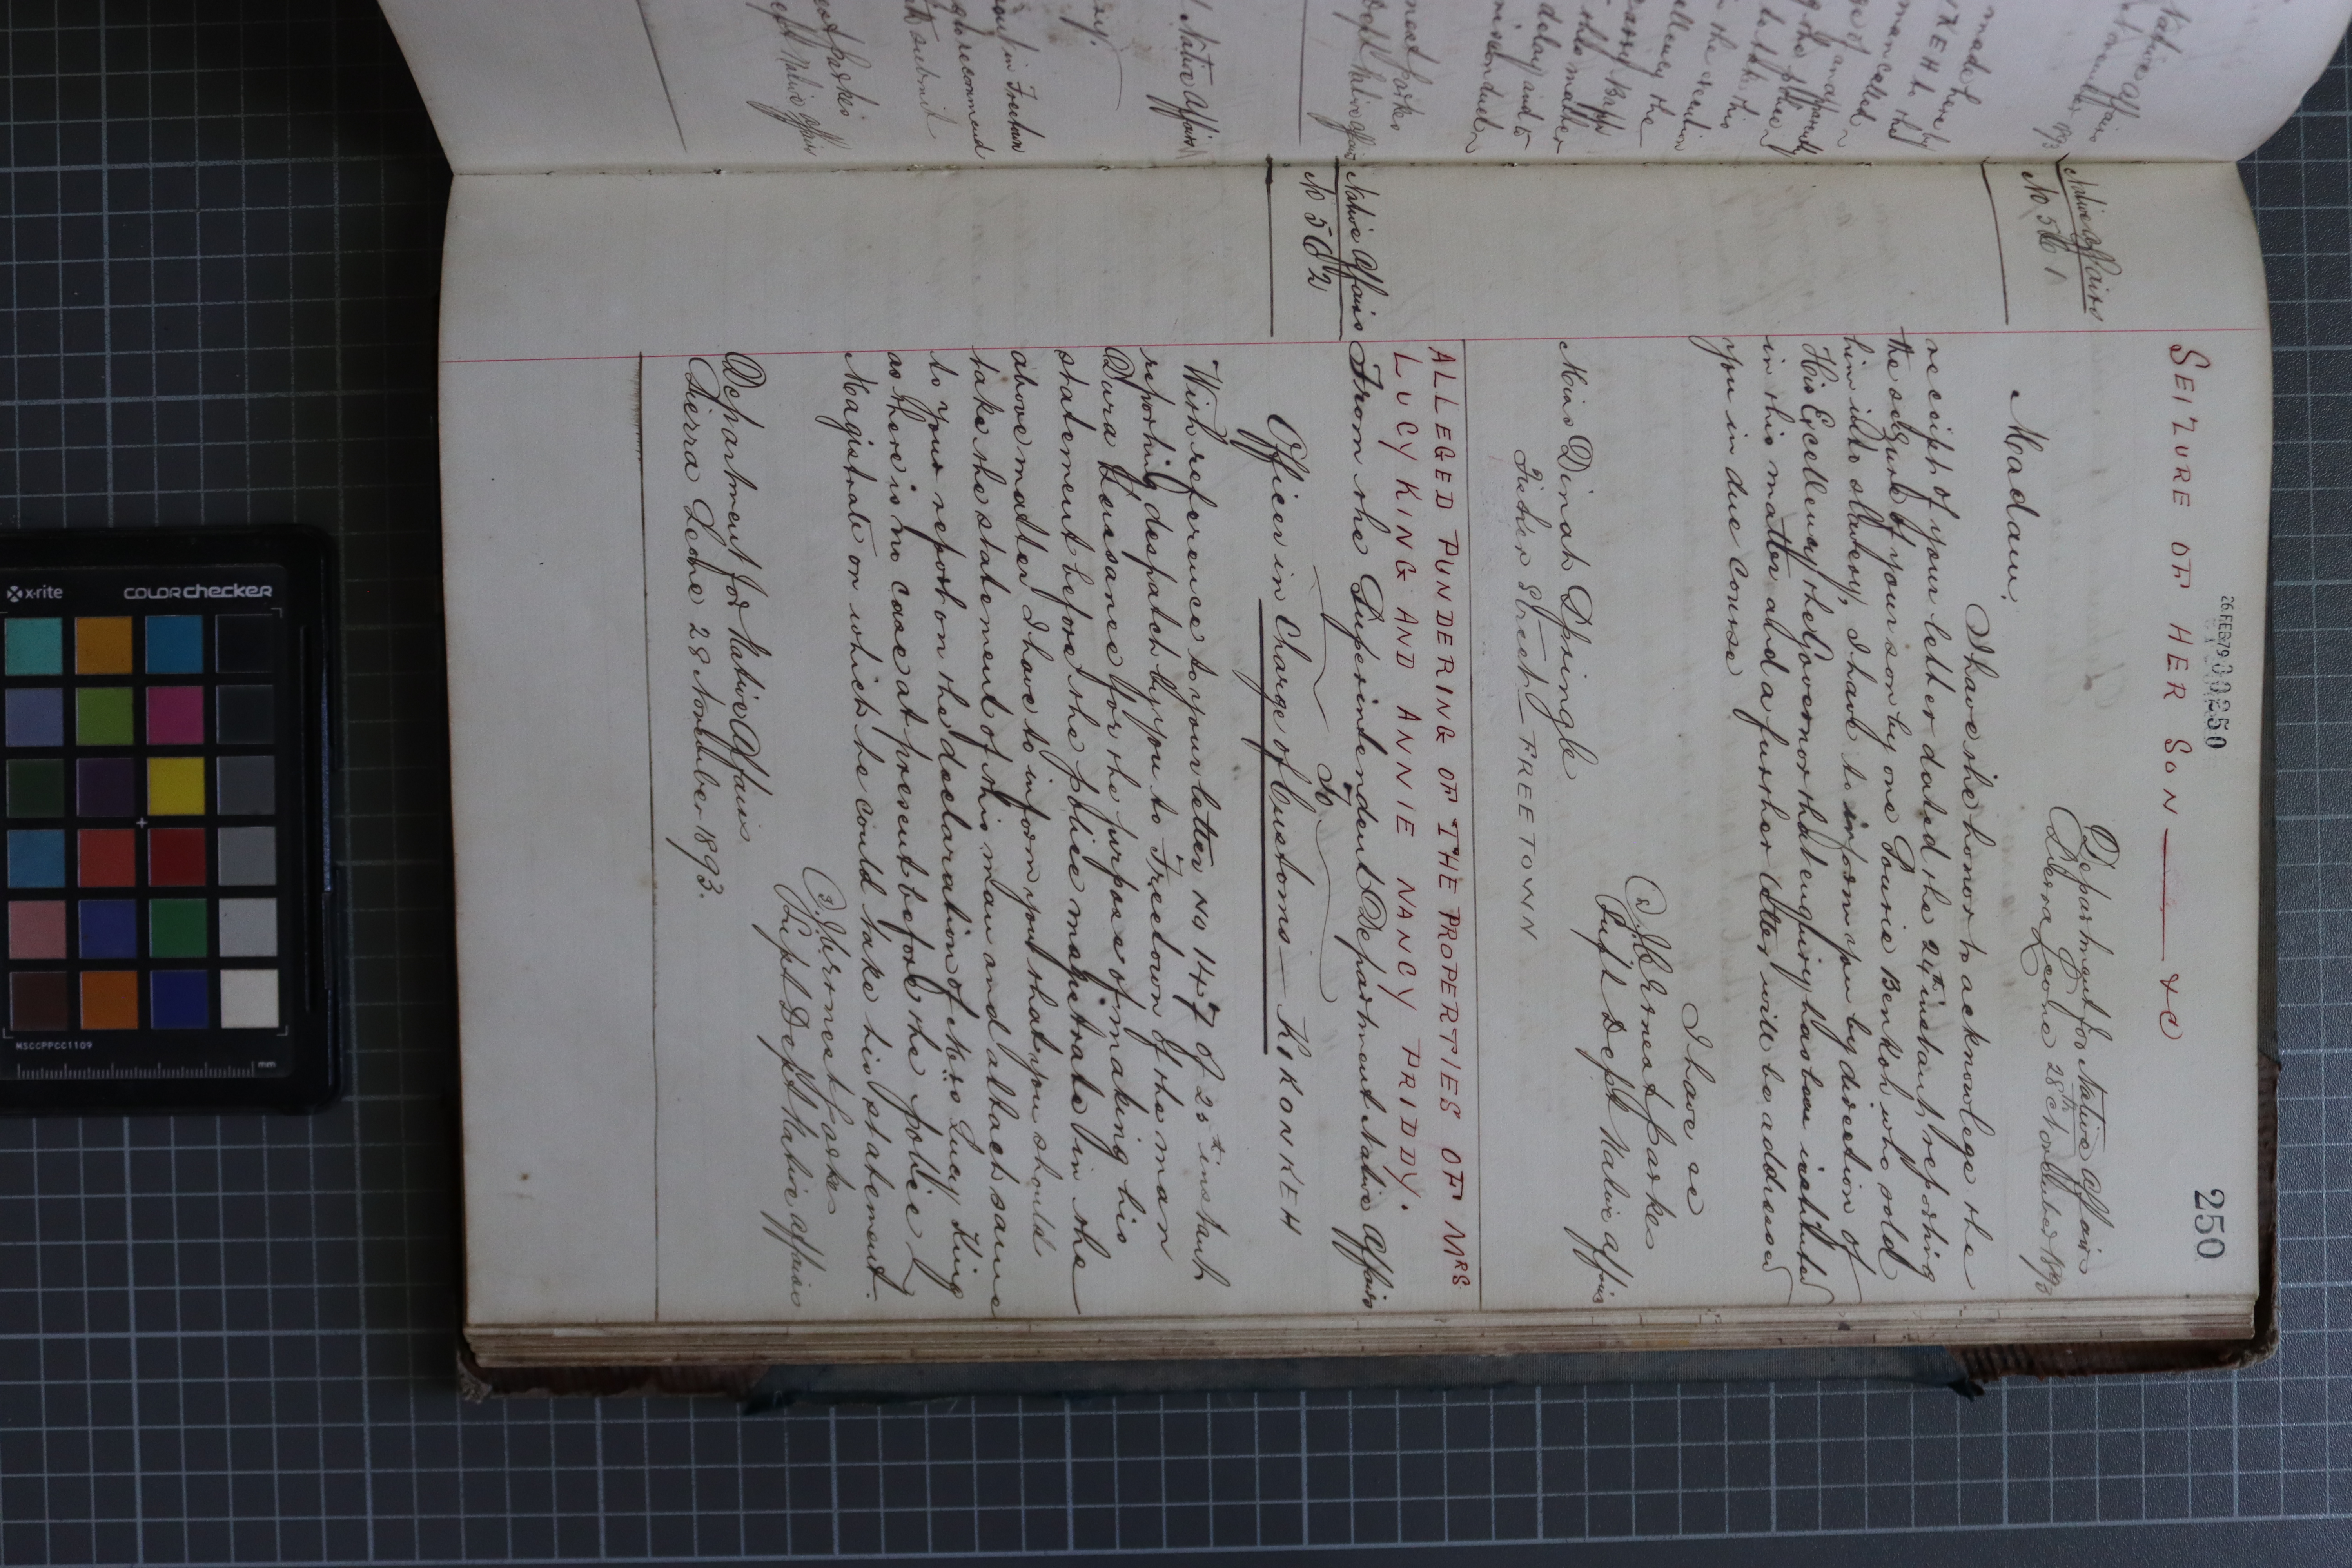 26 FEB 79 000250
250
SEIZURE OF HER SON — &c
Native Affairs
No 561
Department for Native Affairs
Sierra Leone 28th November 1893
Madam,
I have the honor to acknowledge the
receipt of your letter dated the 24th instant, reporting
the seizure of your son by one Benkoh who sold
him into slavery, I have to inform you by direction of
His Excellency the Governor that enquiry has been instituted
in this matter and a further letter will be addressed
you in due course
I have &c
J. C. Ernest Parkes
Supt Dept Native Affairs
Miss Dinah Pringle
Fisher Street — FREETOWN
ALLEGED PUNDERING OF THE PROPERTIES OF MRS
LUCY KING AND ANNIE NANCY PRIDDY.
Native Affairs
No 562
From the Superintendent Department Native Affairs
To
Officer in Charge of Customs — KIKONKEH
With reference to your letter No 147 of 25th instant
reporting despatch by you to Freetown of the man
Bura Sensance for the purpose of making his
statement before the police magistrate in the
above matter I have to inform you that you should
take the statement of this man and attach same
to your report on the declaration of Mrs Lucy King
as there is no case at present before the police
Magistrate on which he could take his statement.
J. C. Ernest Parkes
Supt Dept Native Affairs
Department for Native Affairs
Sierra Leone 28 November 1893.
x-rite
colorchecker
MSCCPPCC1109
mm